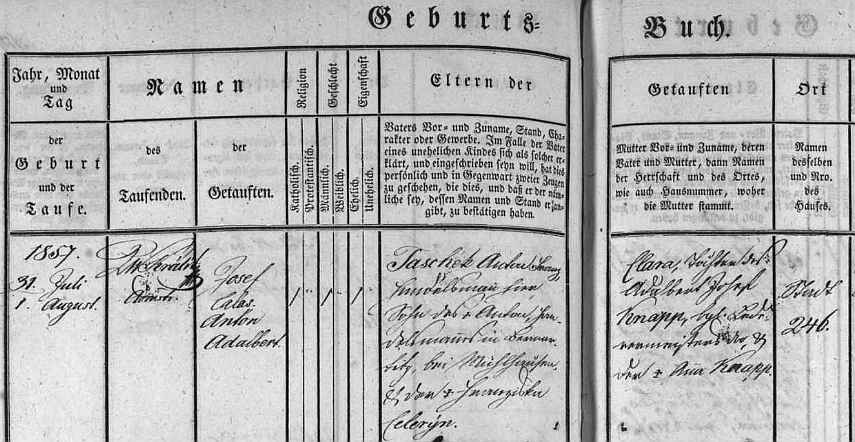 Geburts=
Buch.
Jahr, Monat
und
Tag
der
Geburt
und der
Taufe.
Namen
des
Taufenden.
der
Getauften.
Religion
Katholisch.
Protestantisch.
Geschlecht
Männlich.
Weiblich.
Eigenschaft
Ehelich.
Unehelich.
Eltern der
Vaters Vor= und Zuname, Stand, Cha=
rakter oder Gewerbe. Im Falle der Vater
eines unehelichen Kindes sich als solcher er=
klärt, und eingeschrieben seyn will, hat dies
persönlich und in Gegenwart zweier Zeugen
zu geschehen, die dies, und daß er der näm=
liche sey, dessen Namen und Stand er an=
gibt, zu bestätigen haben.
Getauften
Mutter Vor= und Zuname, deren
Vater und Mutter, dann Namen
der Herrschaft und des Ortes,
wie auch Hausnummer, woher
die Mutter stammt.
Ort
Namen
desselben
und Nro.
des
Hauses.
1857.
31. Juli
1. August.
Josef
Calas.
Anton
Adalbert.
Taschek Anton Franz
Handelsmann hier
Sohn des Anton, Han=
delsmanns in Bernar=
titz, bei Mühlhausen
& der Franziska
Celeryn.
Clara, Tochter des
Adalbert Josef
Knapp, bgl.
&
der Anna Knapp.
Stadt
246.